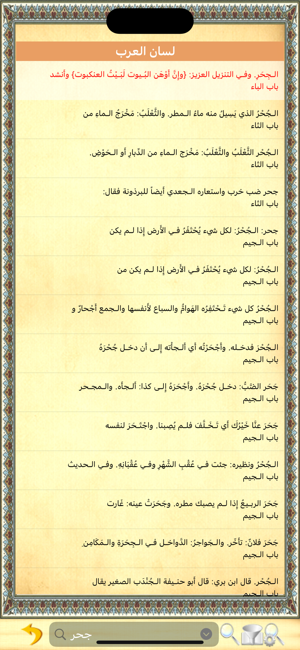 لسان العرب
الـجِحَرِ. وفي التنزيل العزيز: {وإِنَّ أَوْهَنَ البُيوت لَبَيْتُ العنكبوت} وأَنشد
باب الباء
الـجُحْرُ الذي يَسِيلُ منه ماءُ الـمطر. والثَّعْلَبُ: مَخْرَجُ الـماءِ من
باب الثاء
الجُحْر الثَّعْلَبُ والثَّعْلَبُ: مَخْرَج الـماءِ من الدِّبارِ أَو الـحَوْضِ.
باب الثاء
جحر ضب خرب واستعاره الـجعدي أَيضاً للبرذونة فقال:
باب الثاء
جحر: الـجُحْرُ: لكل شيء يُحْتَفَرُ فـي الأَرض إِذا لـم يكن
باب الـجيم
الـجُحْرُ: لكل شيء يُحْتَفَرُ فـي الأَرض إِذا لـم يكن من
باب الـجيم
الـجُحْرُ كل شيء تَـحْتَفِرُه الهَوامُّ والسباع لأَنفسها والـجمع أَجْحارٌ و
باب الـجيم
الـجُحْرَ فدخـله. وأَجْحَرْتُه أَي أَلـجأته إِلـى أَن دخـل جُحْرَهُ
باب الـجيم
جَحَر الضَّبُّ: دخـل جُحْرَهُ. وأَجْحَرَهُ إِلى كذا: أَلـجأَه. والـمجـحر
باب الـجيم
جَحَرَ عنَّا خَيْرُكَ أَي تَـخَـلَّفَ فلـم يُصِبنا. واجْتَـحَرَ لنفسه
باب الـجيم
الـجُحْرُ ونظيره: جئت فـي عُقْبِ الشَّهْرِ وفـي عُقْبَانِهِ. وفـي الـحديث
باب الـجيم
جَحَرَ الربـيعُ إِذا لـم يصبك مطره. وجَحَرَتْ عينه: غَارت
باب الـجيم
جَحَرَ فلانٌ: تأَخَّر. والـجَواحِرُ: الدَّواخـل فـي الـجِحَرَةِ والـمَكَامِنِ
باب الـجيم
الـجُحْرِ. قال ابن بري: قال أَبو حنـيفة الـجُنْدَب الصغير يقال
باب الـجيم
جحر